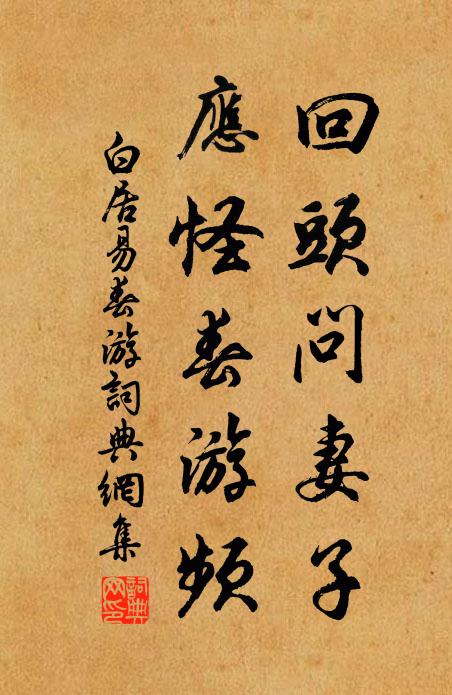 回頭問妻子
應怪春游頻
白居易春游詞典網集
詞典網印